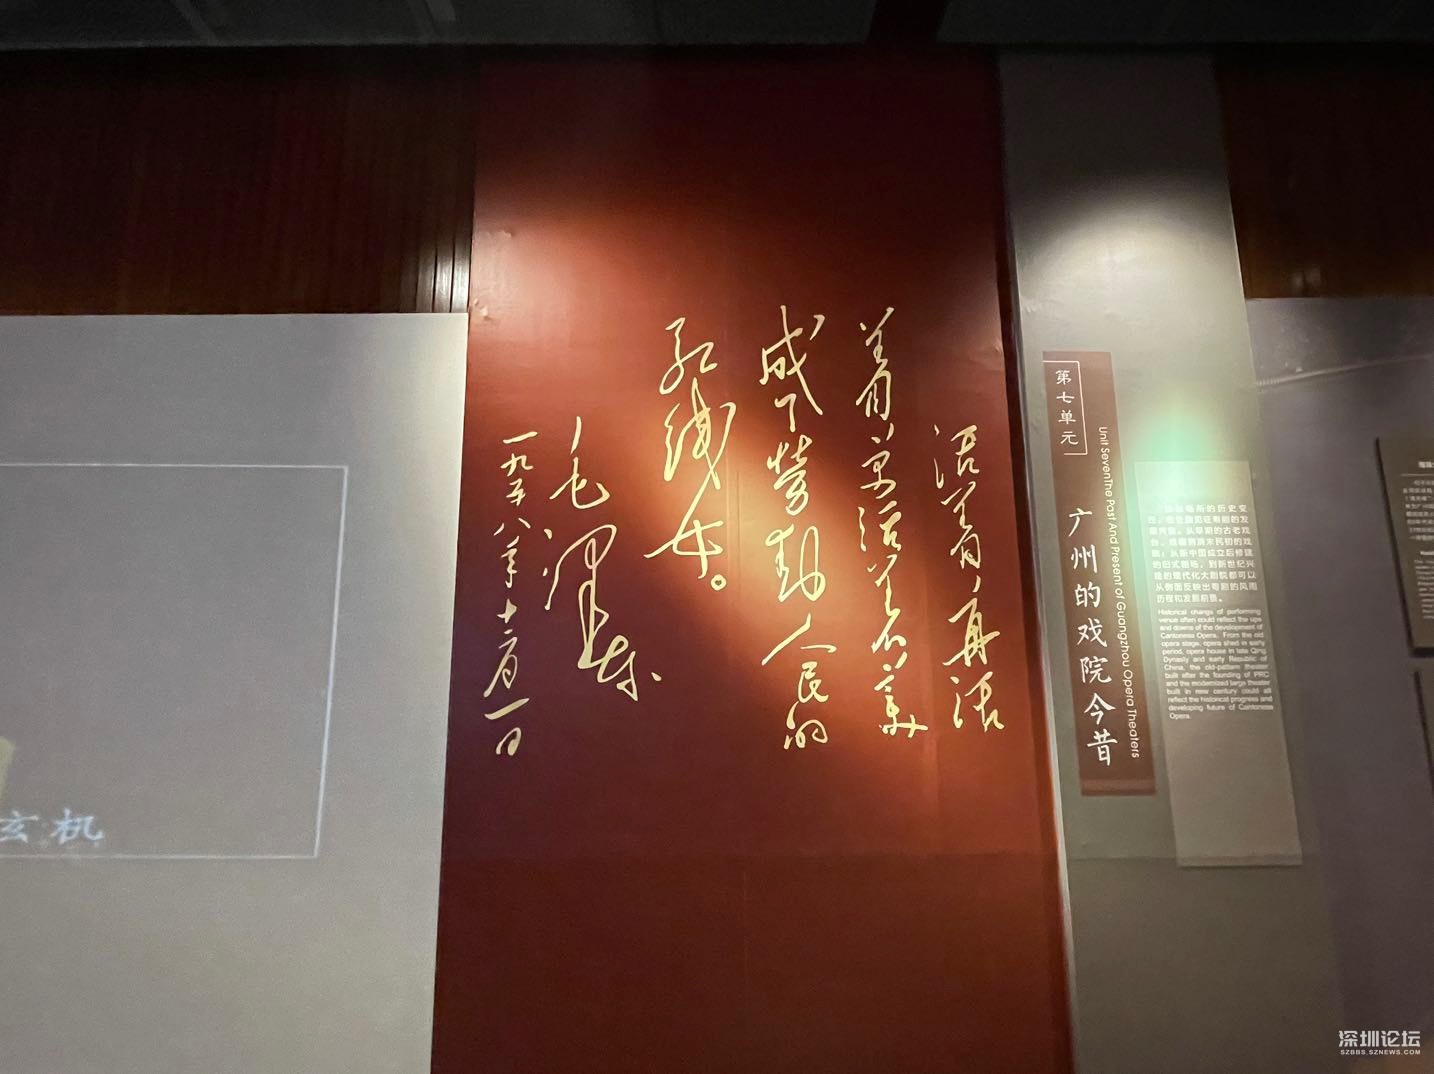 活着,再活
着,更活着,變
成了勞動人民的
紅綫女。
毛澤東
一九五八年十二月一日
第七单元
广州的戏院今昔
Unit SevenThe Past And Present of Guangzhou Opera Theaters
场所的历史变
见证粤剧的发
从早期的古老戏
到清末民初的戏
院;从新中国成立后修建
的旧式剧场,到新世纪兴
建的现代化大剧院都可以
从侧面反映出粤剧的风雨
历程和发展前景。
Historical change of performing
venue often could reflect the ups
and downs of the development of
Cantonese Opera. From the old
opera stage, opera shed in early
period, opera house in late Qing
Dynasty and early Republic of
China, the old-pattern theater
built after the founding of PRC
and the modernized large theater
built in new century could all
reflect the historical progress and
developing future of Cantonese
Opera.
玄机
深圳论坛
SZBBS.SZNEWS.COM